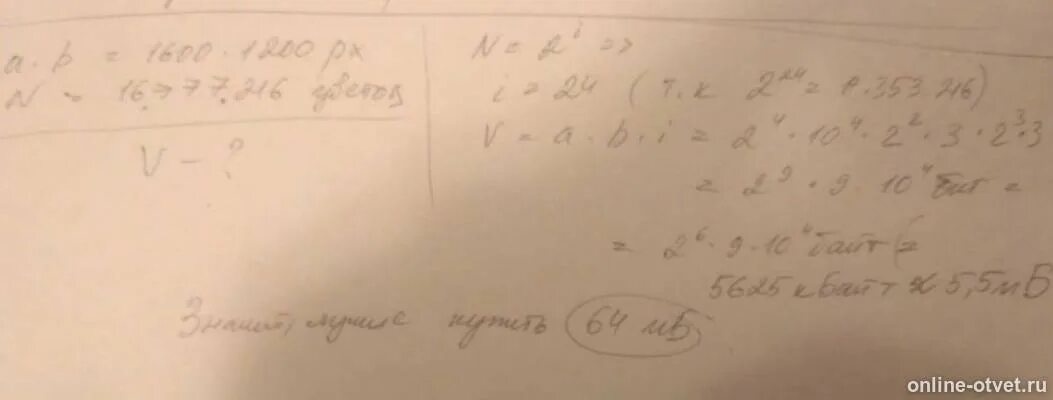 a · b = 1600 · 1200 px
N = 16777.216 цветов
V - ?
N = 2^i =>
i = 24 (т.к 2^24 =
V = a · b · i = 2^4 · 10^4 · 2^2 · 3 · 2^3 · 3
= 2^9 · 9 · 10^4 бит =
= 2^6 · 9 · 10^4 байт =
5625 кбайт ≈ 5,5 мБ
Значит, лучше купить 64 мБ
online-otvet.ru